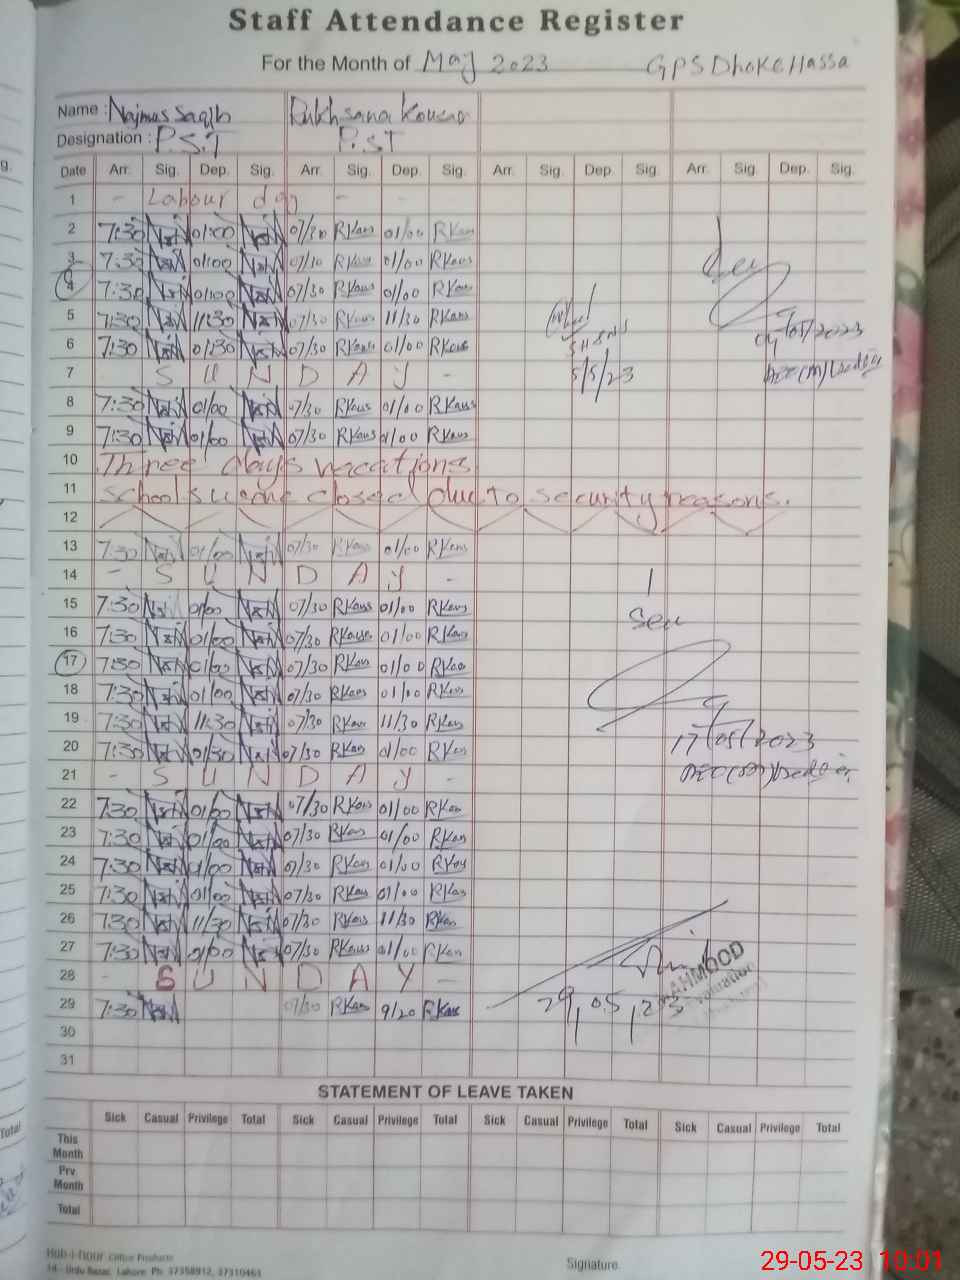 Staff Attendance Register
For the Month of May 2023 GPS Dhoke Hassa
Name : Najmus Saqib Rukhsana Kousar
Designation : P.S.T P.ST
Date Arr. Sig. Dep. Sig. Arr. Sig. Dep. Sig. Arr. Sig. Dep. Sig. Arr. Sig. Dep. Sig.
1 - Labour day -
2 7:30 01:00 07/30 RKaus 01/00 RKaus
3 7:30 01:00 07/30 RKaus 01/00 RKaus
4 7:30 01:00 07/30 RKaus 01/00 RKaus
5 7:30 11:30 07/30 RKaus 11/30 RKaus
6 7:30 01:30 07/30 RKaus 01/00 RKaus
04/05/2023
5/5/23
7 S U N D A Y -
8 7:30 01/00 07/30 RKaus 01/00 RKaus
9 7:30 01/00 07/30 RKaus 01/00 RKaus
10 Three days vacations
11 school closed due to security reasons.
12
13 7:30 01/00 07/30 RKaus 01/00 RKaus
14 - S U N D A Y -
15 7:30 01/00 07/30 RKaus 01/00 RKaus
16 7:30 01/00 07/30 RKaus 01/00 RKaus
17 7:30 01/00 07/30 RKaus 01/00 RKaus
18 7:30 01/00 07/30 RKaus 01/00 RKaus
19 7:30 11:30 07/30 RKaus 11/30 RKaus
20 7:30 01/30 07/30 RKaus 01/00 RKaus
17/05/2023
21 - S U N D A Y -
22 7:30 01/00 07/30 RKaus 01/00 RKaus
23 7:30 01/00 07/30 RKaus 01/00 RKaus
24 7:30 01/00 07/30 RKaus 01/00 RKaus
25 7:30 01/00 07/30 RKaus 01/00 RKaus
26 7:30 11/30 07/30 RKaus 11/30 RKaus
27 7:30 01/00 07/30 RKaus 01/00 RKaus
MAHMOOD
28 - S U N D A Y -
29 7:30 07/30 RKaus 9/20 RKaus
29,05,23
30
31
STATEMENT OF LEAVE TAKEN
Sick Casual Privilege Total Sick Casual Privilege Total Sick Casual Privilege Total Sick Casual Privilege Total
This Month
Prv. Month
Total
Office Products
Urdu Bazar, Lahore. Ph: 37358912, 37310461
Signature.
29-05-23 10:01